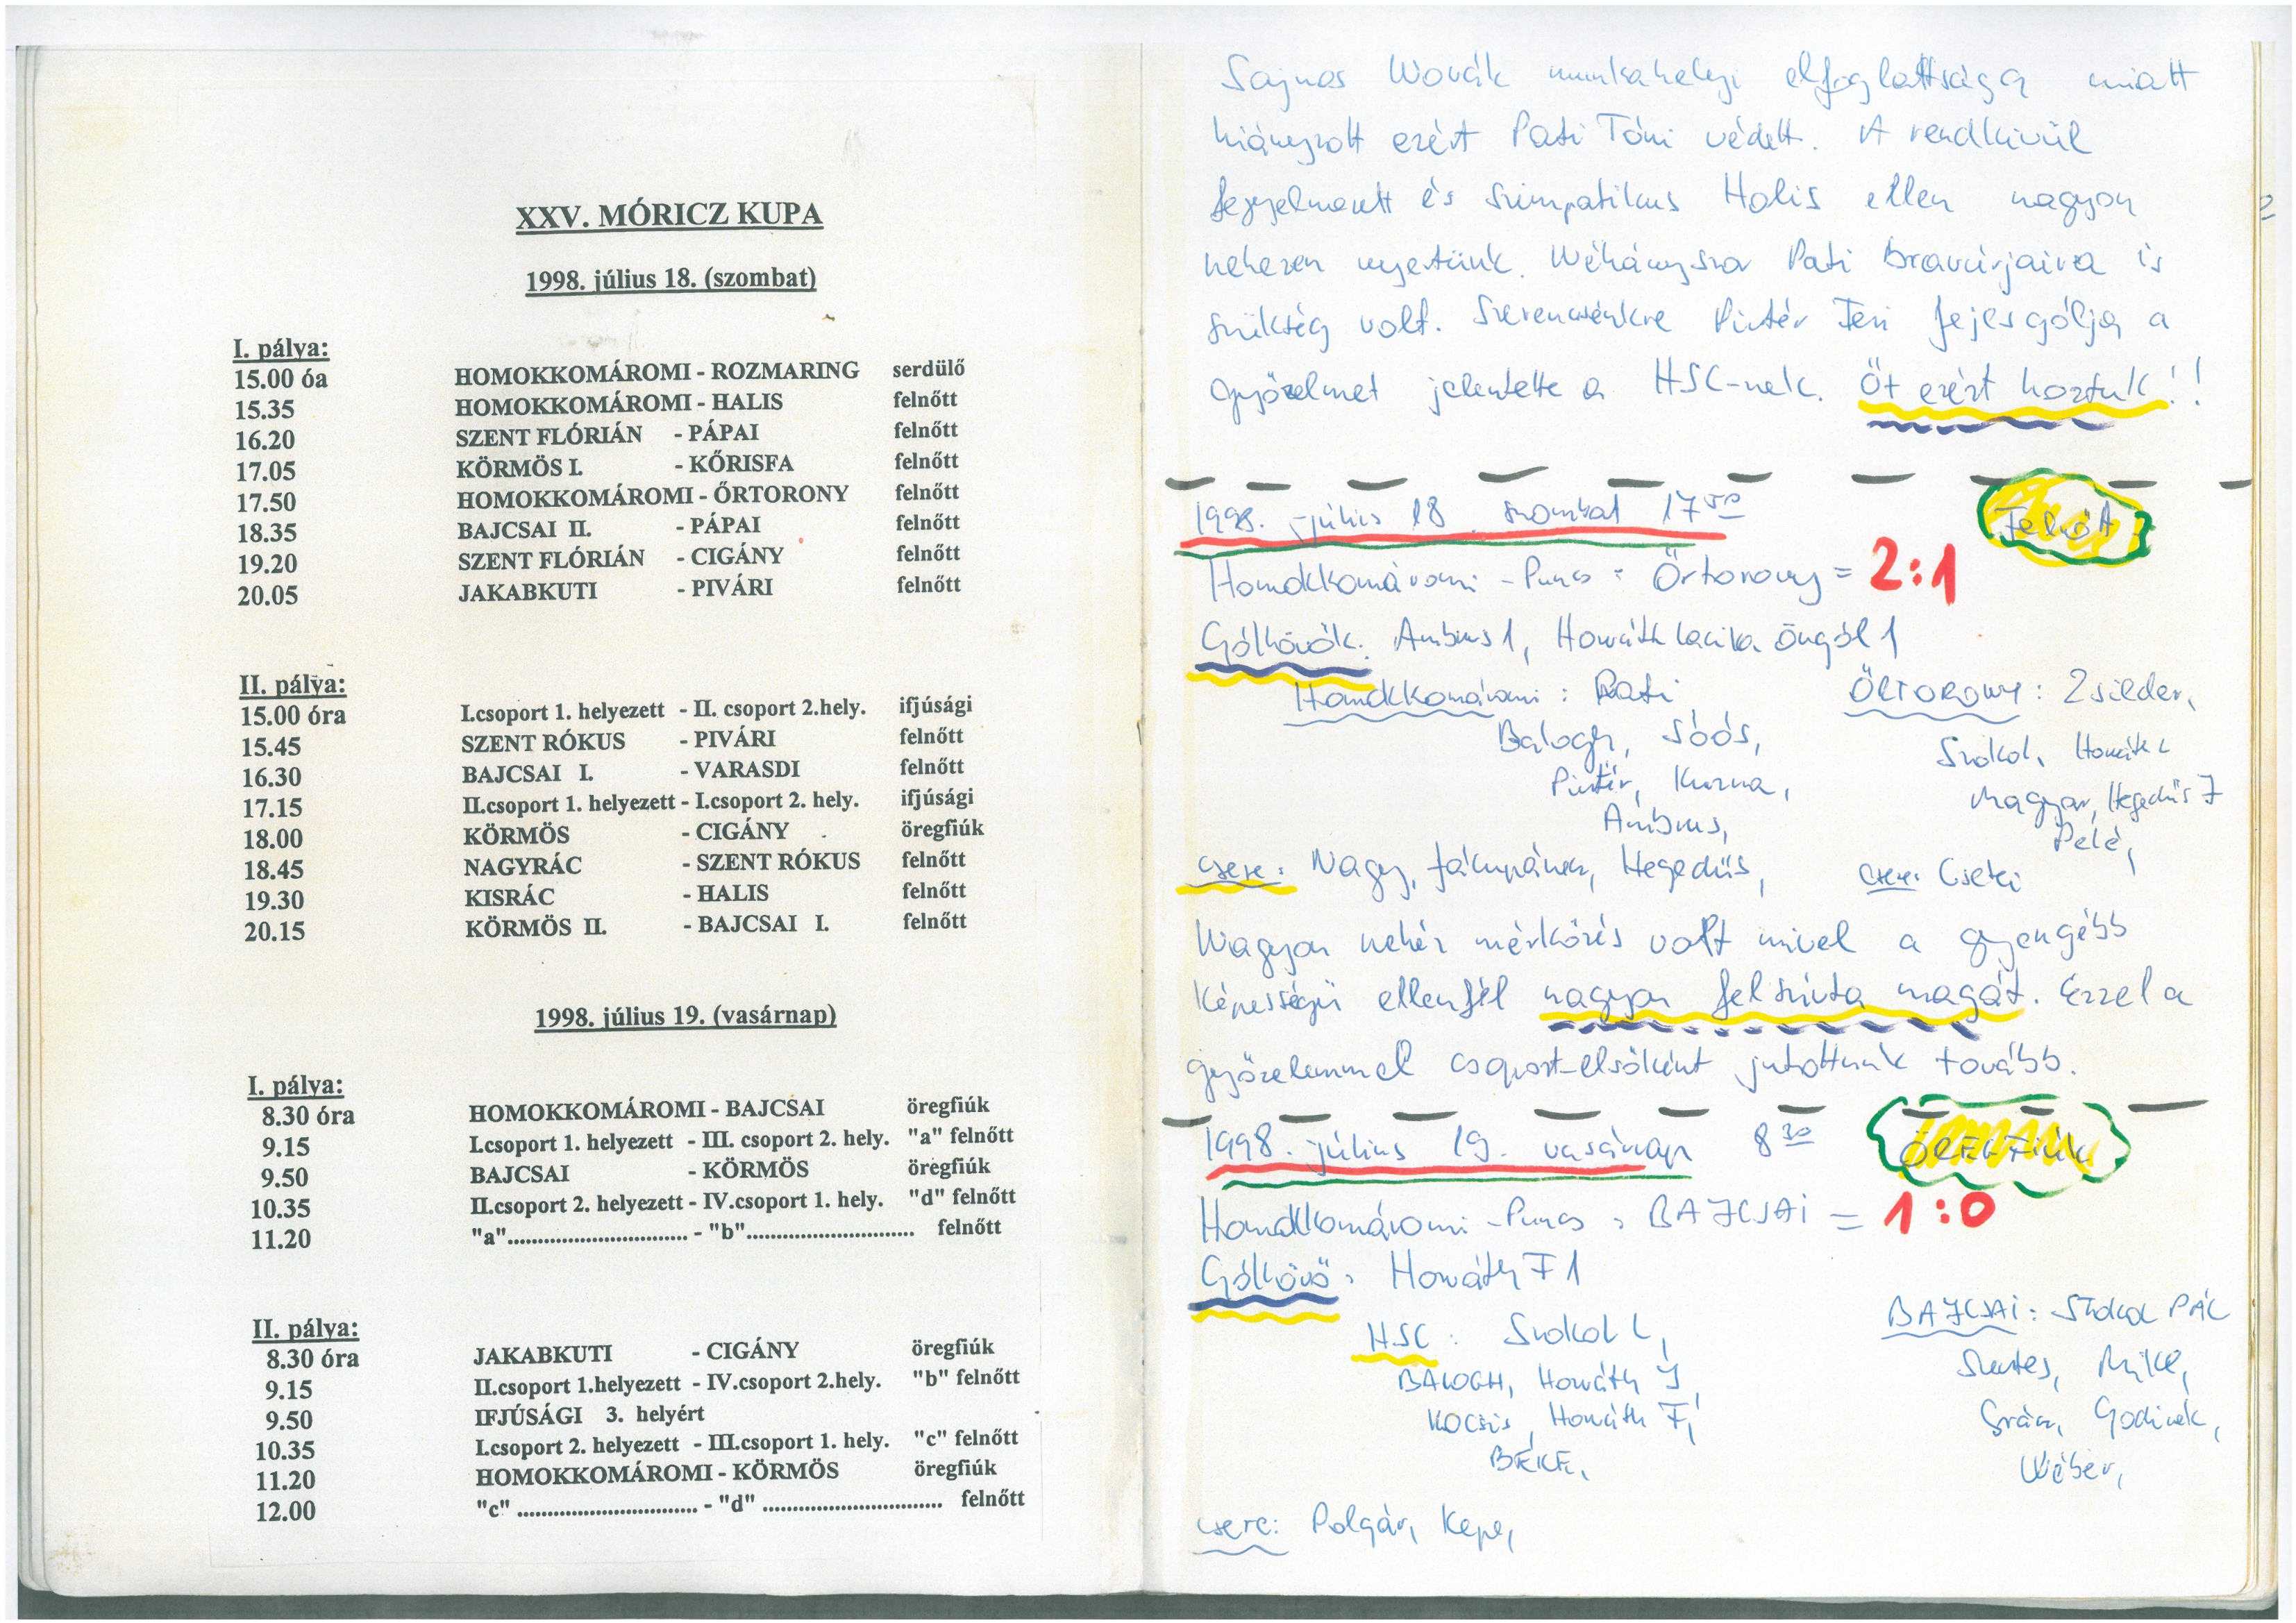 XXV. MÓRICZ KUPA
1998. július 18. (szombat)
I. pálya:
15.00 óa HOMOKKOMÁROMI - ROZMARING serdülő
15.35 HOMOKKOMÁROMI - HALIS felnőtt
16.20 SZENT FLÓRIÁN - PÁPAI felnőtt
17.05 KÖRMÖS I. - KŐRISFA felnőtt
17.50 HOMOKKOMÁROMI - ŐRTORONY felnőtt
18.35 BAJCSAI II. - PÁPAI felnőtt
19.20 SZENT FLÓRIÁN - CIGÁNY felnőtt
20.05 JAKABKUTI - PIVÁRI felnőtt
II. pálya:
15.00 óra I.csoport 1. helyezett - II. csoport 2.hely. ifjúsági
15.45 SZENT RÓKUS - PIVÁRI felnőtt
16.30 BAJCSAI I. - VARASDI felnőtt
17.15 II.csoport 1. helyezett - I.csoport 2. hely. ifjúsági
18.00 KÖRMÖS - CIGÁNY öregfiúk
18.45 NAGYRÁC - SZENT RÓKUS felnőtt
19.30 KISRÁC - HALIS felnőtt
20.15 KÖRMÖS II. - BAJCSAI I. felnőtt
1998. július 19. (vasárnap)
I. pálya:
8.30 óra HOMOKKOMÁROMI - BAJCSAI öregfiúk
9.15 I.csoport 1. helyezett - III. csoport 2. hely. "a" felnőtt
9.50 BAJCSAI - KÖRMÖS öregfiúk
10.35 II.csoport 2. helyezett - IV.csoport 1. hely. "d" felnőtt
11.20 "a".............................. - "b"............................ felnőtt
II. pálya:
8.30 óra JAKABKUTI - CIGÁNY öregfiúk
9.15 II.csoport 1.helyezett - IV.csoport 2.hely. "b" felnőtt
9.50 IFJÚSÁGI 3. helyért
10.35 I.csoport 2. helyezett - III.csoport 1. hely. "c" felnőtt
11.20 HOMOKKOMÁROMI - KÖRMÖS öregfiúk
12.00 "c" .............................. - "d" .............................. felnőtt
Sajnos Novák munkahelyi elfoglaltsága miatt
hiányzott ezért Pati Tóni védett. A rendkívül
fegyelmezett és szimpatikus Halis ellen nagyon
nehezen nyertünk. Néhányszor Pati bravúrjaira is
szükség volt. Szerencsénkre Pintér Feri fejesgólja a
győzelmet jelentette a HSC-nek. Őt ezért hoztuk!!
1998. július 18. szombat 17 50 Felnőtt
Homokkomáromi - Puncs : Őrtorony = 2:1
Góllövők: Ambrus 1, Horváth Lacika öngól 1
Homokkomáromi: Pati
Balogh, Soós,
Pintér, Kuzma,
Ambrus,
csere: Nagy, Hegedűs,
ŐRTORONY: Zsilder,
Szokol, Horváth L
Magyar, Hegedűs J
Pelé,
csere: Csetei
Nagyon nehéz mérkőzés volt mivel a gyengébb
képességű ellenfél nagyon felszívta magát. Ezzel a
győzelemmel csoport-elsőként jutottunk tovább.
1998. július 19. vasárnap 8 30 ÖREGFIÚK
Homokkomáromi - Puncs : BAJCSAI = 1:0
Góllövő: Horváth F 1
HSC: Szokol L,
BALOGH, Horváth J,
KOCSIS, Horváth F,
BEKE,
csere: Polgár, Kepe,
BAJCSAI: Szokol PÁL
Szentes, Mike,
Godinek,
Wéber,